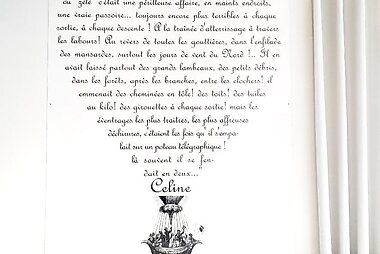 du "zélé" c'était une périlleuse affaire, en maints endroits,
une vraie passoire... toujours encore plus terribles à chaque
sortie, à chaque descente ! A la traînée d'atterrissage à travers
les labours! Au revers de toutes les gouttières, dans l'enfilade
des mansardes, surtout les jours de vent du Nord !.. Il en
avait laissé partout des grands lambeaux, des petits débris,
dans les forêts, après les branches, entre les clochers! il
emmenait des cheminées en tôle! des toits! des tuiles
au kilo! des girouettes à chaque sortie! mais les
éventrages les plus traîtres, les plus affreuses
déchirures, c'étaient les fois qu'il s'empa-
lait sur un poteau télégraphique !
là souvent il se fen-
dait en deux..."
Celine